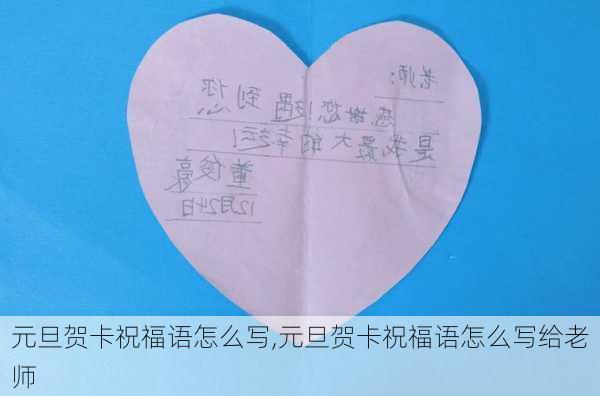 老师:
感谢您!遇到您
是我最大的幸运!
董俊豪
12月24日
元旦贺卡祝福语怎么写,元旦贺卡祝福语怎么写给老
师